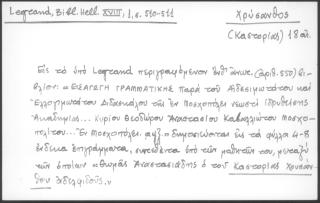 Legrand, Bibl. Hell. XVIII, 1, σ. 510-511
Χρύσανθος
(Καστορίας) 18 αἰ.
Εἰς τὸ ὑπὸ Legrand περιγραφόμενον ἐνθ' ἄνω (ἀριθ. 550) βι-
βλίον: «ΕΙΣΑΓΩΓΗ ΓΡΑΜΜΑΤΙΚΗΣ παρὰ τοῦ Αἰδεσιμωτάτου καὶ
Ἐλλογιμωτάτου Διδασκάλου τῆς ἐν Μοσχοπόλει νεωστὶ ἱδρυθείσης
Ἀκαδημίας... κυρίου Θεοδώρου Ἀναστασίου Καβαλλιώτου Μοσχο-
πολίτου... Ἐν Μοσχοπόλει αψξ'» δημοσιεύονται εἰς τὰ φύλλα 4-8
ἕνδεκα ἐπιγράμματα, συντεθέντα ὑπὸ τῶν μαθητῶν του, μεταξὺ
τῶν ὁποίων «Θωμᾶς Ἀναστασιάδης ὁ τοῦ Καστορίας Χρυσάν-
θου ἀδελφιδοῦς.»